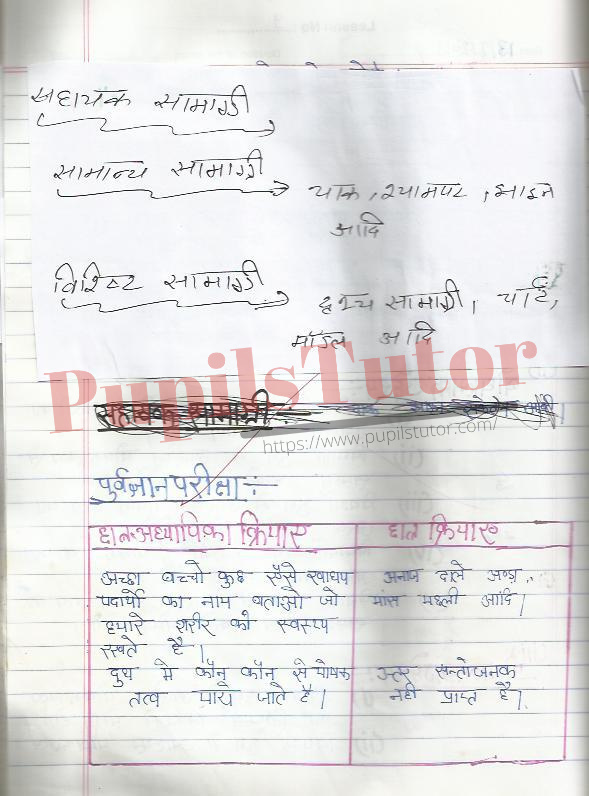 सहायक सामाग्री
सामान्य सामाग्री
चाक, श्यामपट, झाड़न
आदि
विशिष्ट सामाग्री
दृश्य सामाग्री, चार्ट,
मॉडल आदि
PupilsTutor
सहायक सामाग्री :-
https://www.pupilstutor.com/
पुर्वज्ञान परीक्षा :-
छात्र-अध्यापिका क्रियाए
छात्र क्रियाए
अच्छा बच्चो कुछ ऐसे खाद्यय
पदार्थो का नाम बताओ जो
हमारे शरीर को स्वस्थ्य
रखते है।
अनाज दाले अण्डा,
मांस मछली आदि।
दुध मे कौन कौन से पोषक
तत्व पाये जाते है।
उत्तर सन्तोजनक
नही प्राप्त है।